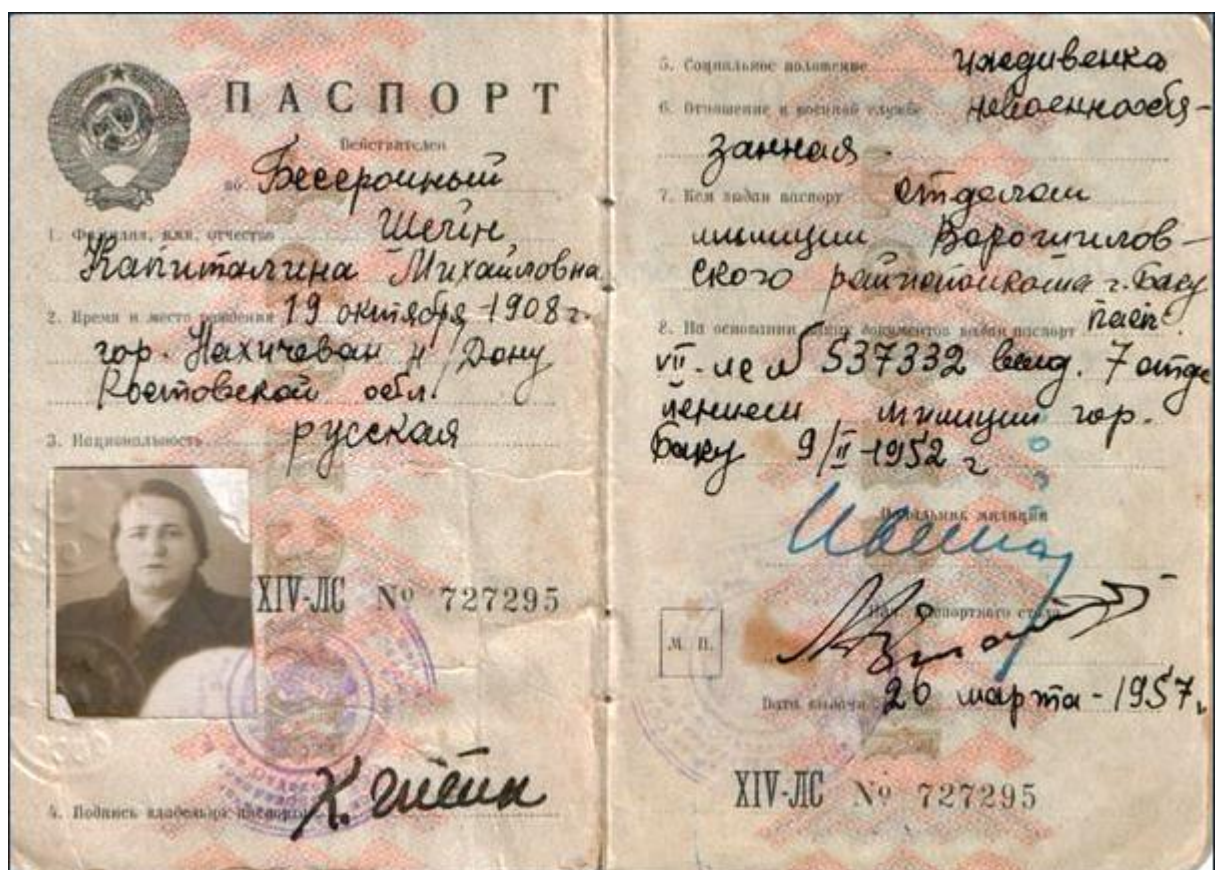 ПАСПОРТ
Действителен
по Бессрочный
1. Фамилия, имя, отчество Шейн
Капиталина Михайловна
2. Время и место рождения 19 октября 1908 г.
гор. Нахичевань н/Дону
Ростовской обл.
3. Национальность русская
XIV-ЛС № 727295
4. Подпись владельца паспорта К. Шеин
5. Социальное положение иждивенка
6. Отношение к военной службе невоеннообя-
занная
7. Кем выдан паспорт отделом
милиции Ворошилов-
ского райисполкома г. Баку
8. На основании каких документов выдан паспорт пасп.
VII-ле № 537332 выд. 7 отде
лением милиции гор.
Баку 9/II-1952 г
Начальник милиции
Нач. паспортного стола
М. П.
Дата выдачи 26 марта - 1957 г.
XIV-ЛС № 727295